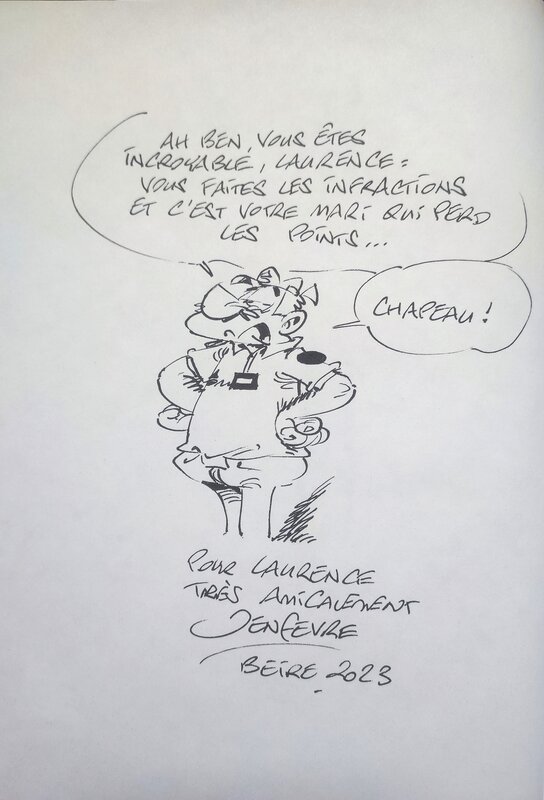 AH BEN, VOUS ÊTES
INCROYABLE, LAURENCE :
VOUS FAITES LES INFRACTIONS
ET C'EST VOTRE MARI QUI PERD
LES POINTS...
CHAPEAU !
POUR LAURENCE
TRÈS AMICALEMENT
JENFEVRE
BEIRE 2023